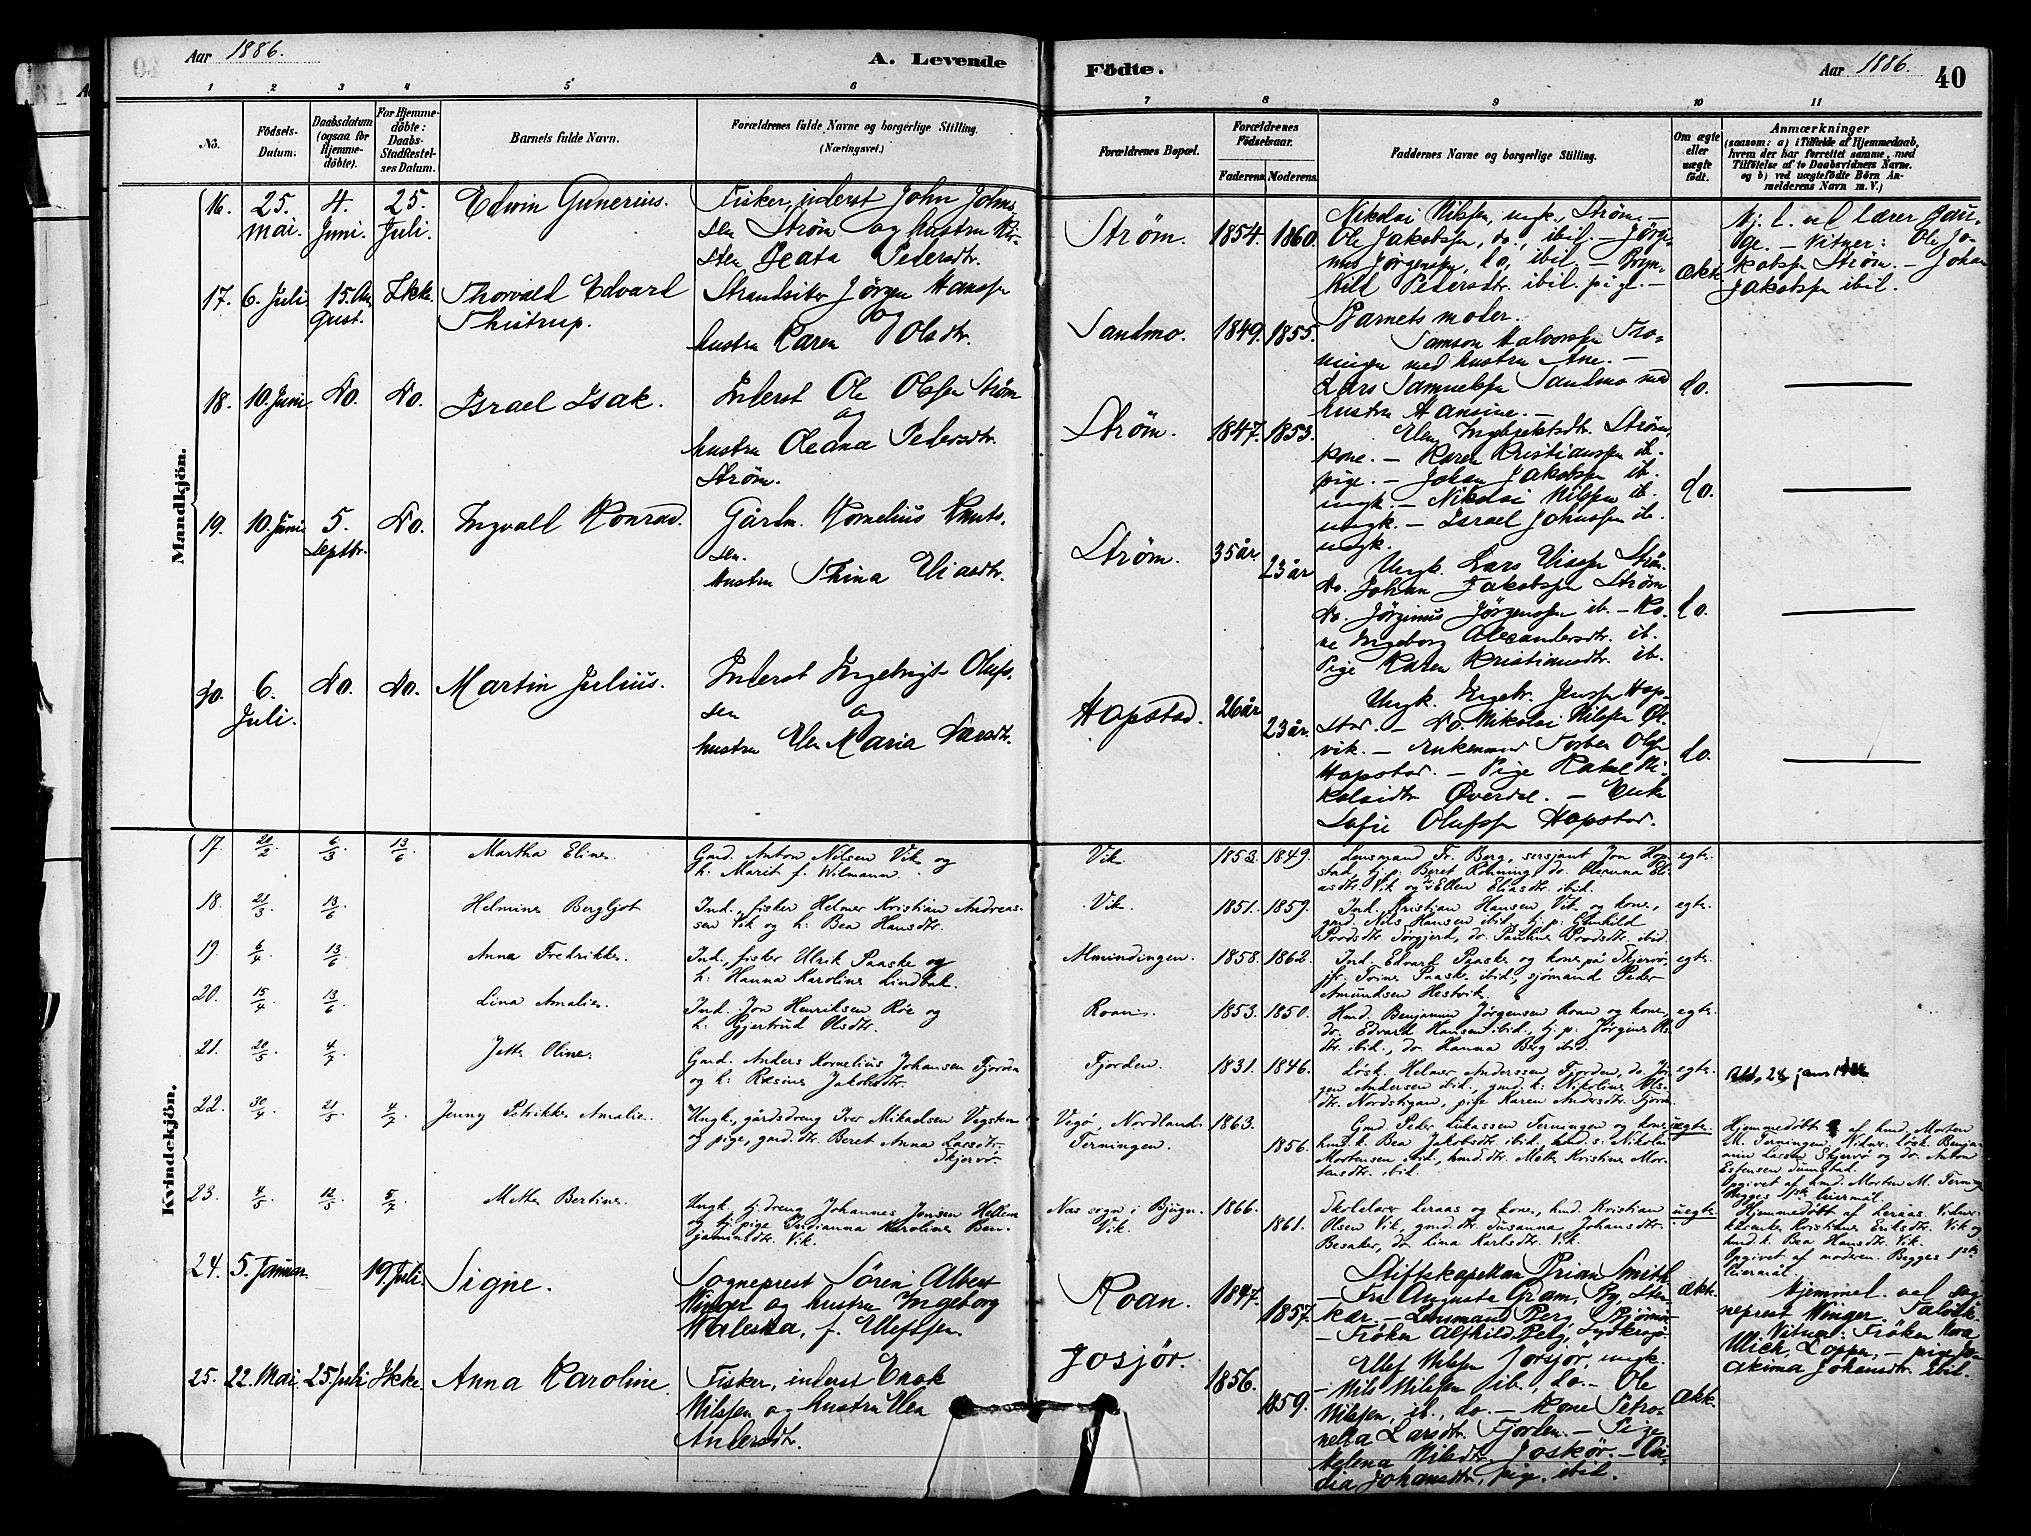 Aar 1886.
A. Levende
Födte.
Aar 1886.
40
1 2 3 4 5 6 7 8 9 10 11
No.
Födsels-
Datum.
Daabsdatum
(ogsaa for
Hjemme-
döbte).
For Hjemme-
döbte:
Daabs-
Stadfestel-
ses Datum.
Barnets fulde Navn.
Forældrenes fulde Navne og borgerlige Stilling.
(Næringsvei.)
Forældrenes Bopæl.
Forældrenes
Födselsaar.
Faderens. Moderens.
Faddernes Navne og borgerlige Stilling.
Om ægte
eller
uægte
födt.
Anmærkninger
(saasom: a) i Tilfælde af Hjemmedaab,
hvem der har forrettet samme, med
Tilföielse af to Daabsvidners Navne.
og b) ved uægtefödte Börn An-
melderens Navn m. V.)
Mandkjön.
16. 25. mai. 4. Juni. 25. Juli. Edvin Gunerius.
Fisker, inderst John Johns-
sen Strøm og hustru Kir-
sten Beata Pedersdtr.
Strøm. 1854. 1860.
Nikolai Nilssen, ungk., Strøm. —
Ole Jakobssen, do., ibid. — Jørgi-
nus Jørgenssen, do, ibid. —
Pedersdtr. ibid. pige. —
ækte
lærer
Vitner: Ole Ja-
kobssen Strøm. — Johan
Jakobssen ibil.
17. 6. Juli 15. Au-
gust. Ikke. Thorvald Edvard
Thistrup.
Strandsitter Jørgen Hanssen
og
hustru Karen Olsdtr.
Sandmo. 1849. 1855.
Barnets moder.
Samson Halvorssen
med hustru Ane. —
Lars Samuelssen Sandmo med
hustru Hansine. —
do.
18. 10. Juni do. do. Israel Isak.
Inderst Ole Olssen Strøm
og
hustru Oleana Pedersdtr.
Strøm.
Strøm. 1847. 1853.
Elen Ingebrektsdtr. Strøm,
kone. — Karen Kristianssen ib.
pige. — Johan Jakobssen ib.
ungk. — Nikolai Nilssen ib.
ungk. — Israel Johnssen ib.
ungk.
do.
19. 10. Juni 5.
Septbr. do. Ingvald Konrad.
Gårdm. Kornelius Knuts-
sen.
Hustru Thina Eliasdtr.
Strøm. 35 år. 23 år
Ungk. Lars Strøm.
do. Johan Jakobssen Strøm
do. Jørginus Jørgenssen ib. — Ko-
ne Ingeborg Alexandersdtr. ib.
Pige Karen Kristiansdtr. ib.
do.
20. 6.
Juli. do. do. Martin Julius.
Inderst Ingebrigt Olufs-
sen og
hustru Elen Maria Larsdtr.
Hopstad. 26 år 23 år.
Ungk. Engebr. Jenssen Hop-
stad. — do. Nikolai Nilssen
vik. — Enkemand Torben Olssen
Hopstad. — Pige Rakel Ni-
kolaidtr. Øverdal. — Enke
Sofie Olufssen Hopstad.
do.
Kvindekjön.
17. 20/2 6/3 13/6 Martha Eline.
Gmd. Anton Nilsen Vik og
h: Marit f. Wilmann.
Vik 1853. 1849.
Lensmand Fr. Berg, sersjant Jon Hop-
stad, tj.p: Beret Rønning, do. Oleanna Eli-
asdtr. Vik og Ellen Eliasdtr. ibid.
egte.
18. 21/3 13/6 Helmine Bergljot
Ind., fisker Helmer Kristian Andreas-
sen Vik og h: Bea Hansdtr.
Vik. 1851. 1859.
Ind. Kristian Hansen Vik og kone,
gmd. Nils Hansen ibid, tj.p: Gunhild
Brodsdtr. Torgjerd, do. Pauline Brodsdtr. ibid.
egte.
19. 6/4 13/6 Anna Fredrikke.
Ind., fisker Ulrik Paaske og
h: Hanna Karoline Lindbak.
Almindingen. 1858. 1862.
Ind. Edvard Paaske og kone på Skjervø,
jfr. Trine Paaske ibid., sjømand Peder
Amundsen Hestvik.
egte.
20. 15/4 13/6 Lina Amalie.
Ind. Jon Henriksen Röe og
h: Gjertrud Olsdtr.
Roan. 1853. 1850.
Hmd. Benjamin Jørgensen Roan og kone,
do. Edvard Hansen ibid., tj.p: Jørgine Ols-
dtr. ibid., do. Hanna Berg ibid.
egte.
21. 20/5 4/7 Jette Oline.
Gmd. Anders Kornelius Johansen Fjorden
og h: Rasine Jakobsdtr.
Fjorden 1831. 1846.
Løsk. Helmer Anderssen Fjorden, do. Jør-
gen Andersen ibid., gmd. k: Nikoline Ols-
dtr. Nordstigan, pige Karen Andersdtr. Fjorden.
egte.
22. 30/4 21/5 4/7 Jenny Petrikke Amalie.
Ungk., gårdsdreng Iver Mikaelsen Vegsten
og pige, gmd.dtr. Beret Anna Larsdtr.
Skjervø.
Vigø, Nordland.
Terningen. 1863. 1856.
Gmd. Peder Lukassen Terningen og kone,
hmd. k: Bea Jakobsdtr. ibid., hmd. s: Nikolai
Mortensen ibid., hmd.dtr. Mette Kristine Mor-
tensdtr. ibid.
uegte.
Hjemmedöbt af hmd. Morten
M. Terningen. Vidner: løsk. Benja-
min Larsen Skjervø og do. Anton
Esfensen Sumstad.
Opgivet af hmd. Morten M. Terningen
Begges 1ste leiermål.
23. 4/5 12/5 5/7 Mette Bertine.
Ungk., tj.dreng Johannes Jonsen Hellem
og tj.pige Indianna Karoline Ben-
jaminsdtr. Vik.
Nes sogn i Bjugn.
Vik. 1866. 1861.
Skolelærer Leraas og kone, hmd. Kristian
Olsen Vik, gmd.dtr. Susanna Johansdtr.
Besaker, do. Lina Karlsdtr. Vik.
uegte.
Hjemmedöbt af Leraas. Vidner:
Kristiane Eriksdtr. Vik og
hmd. k. Bea Hansdtr. Vik.
Opgivet af modren. Begges 1ste
leiermål.
24. 5. Januar 19. Juli. Signe.
Sogneprest Sören Albert
Winger og hustru Ingeborg
Waleska, f. Ellefssen.
Roan. 1847. 1857.
Stiftskapellan Brian Smith.
— Fru Augusta Gram,
— Lensmand Berg, Bjømør
— Frøken Alfhild Berg,
ækte.
Hjemmed. ved sog-
neprest Winger.
Vitner: Frøken Nora
Ulich, Loppen, — pige Jo-
akima Johansdtr. ibid.
25. 22. Mai 25 Juli Ikke. Anna Karoline.
Fisker, inderst Enok
Nilssen og hustru Elen
Andersdtr.
Josjør. 1856. 1859.
Ellef Nilssen Josjør, ungk.
— Nils Nilssen ib., do. — Ole
Nilssen, ib., do. — Kone Petro-
nella Larsdtr. Fjorden. — Pige
Helena Nilsdtr. Joskör. —
Johansdtr., pige, ibid.
ækte.